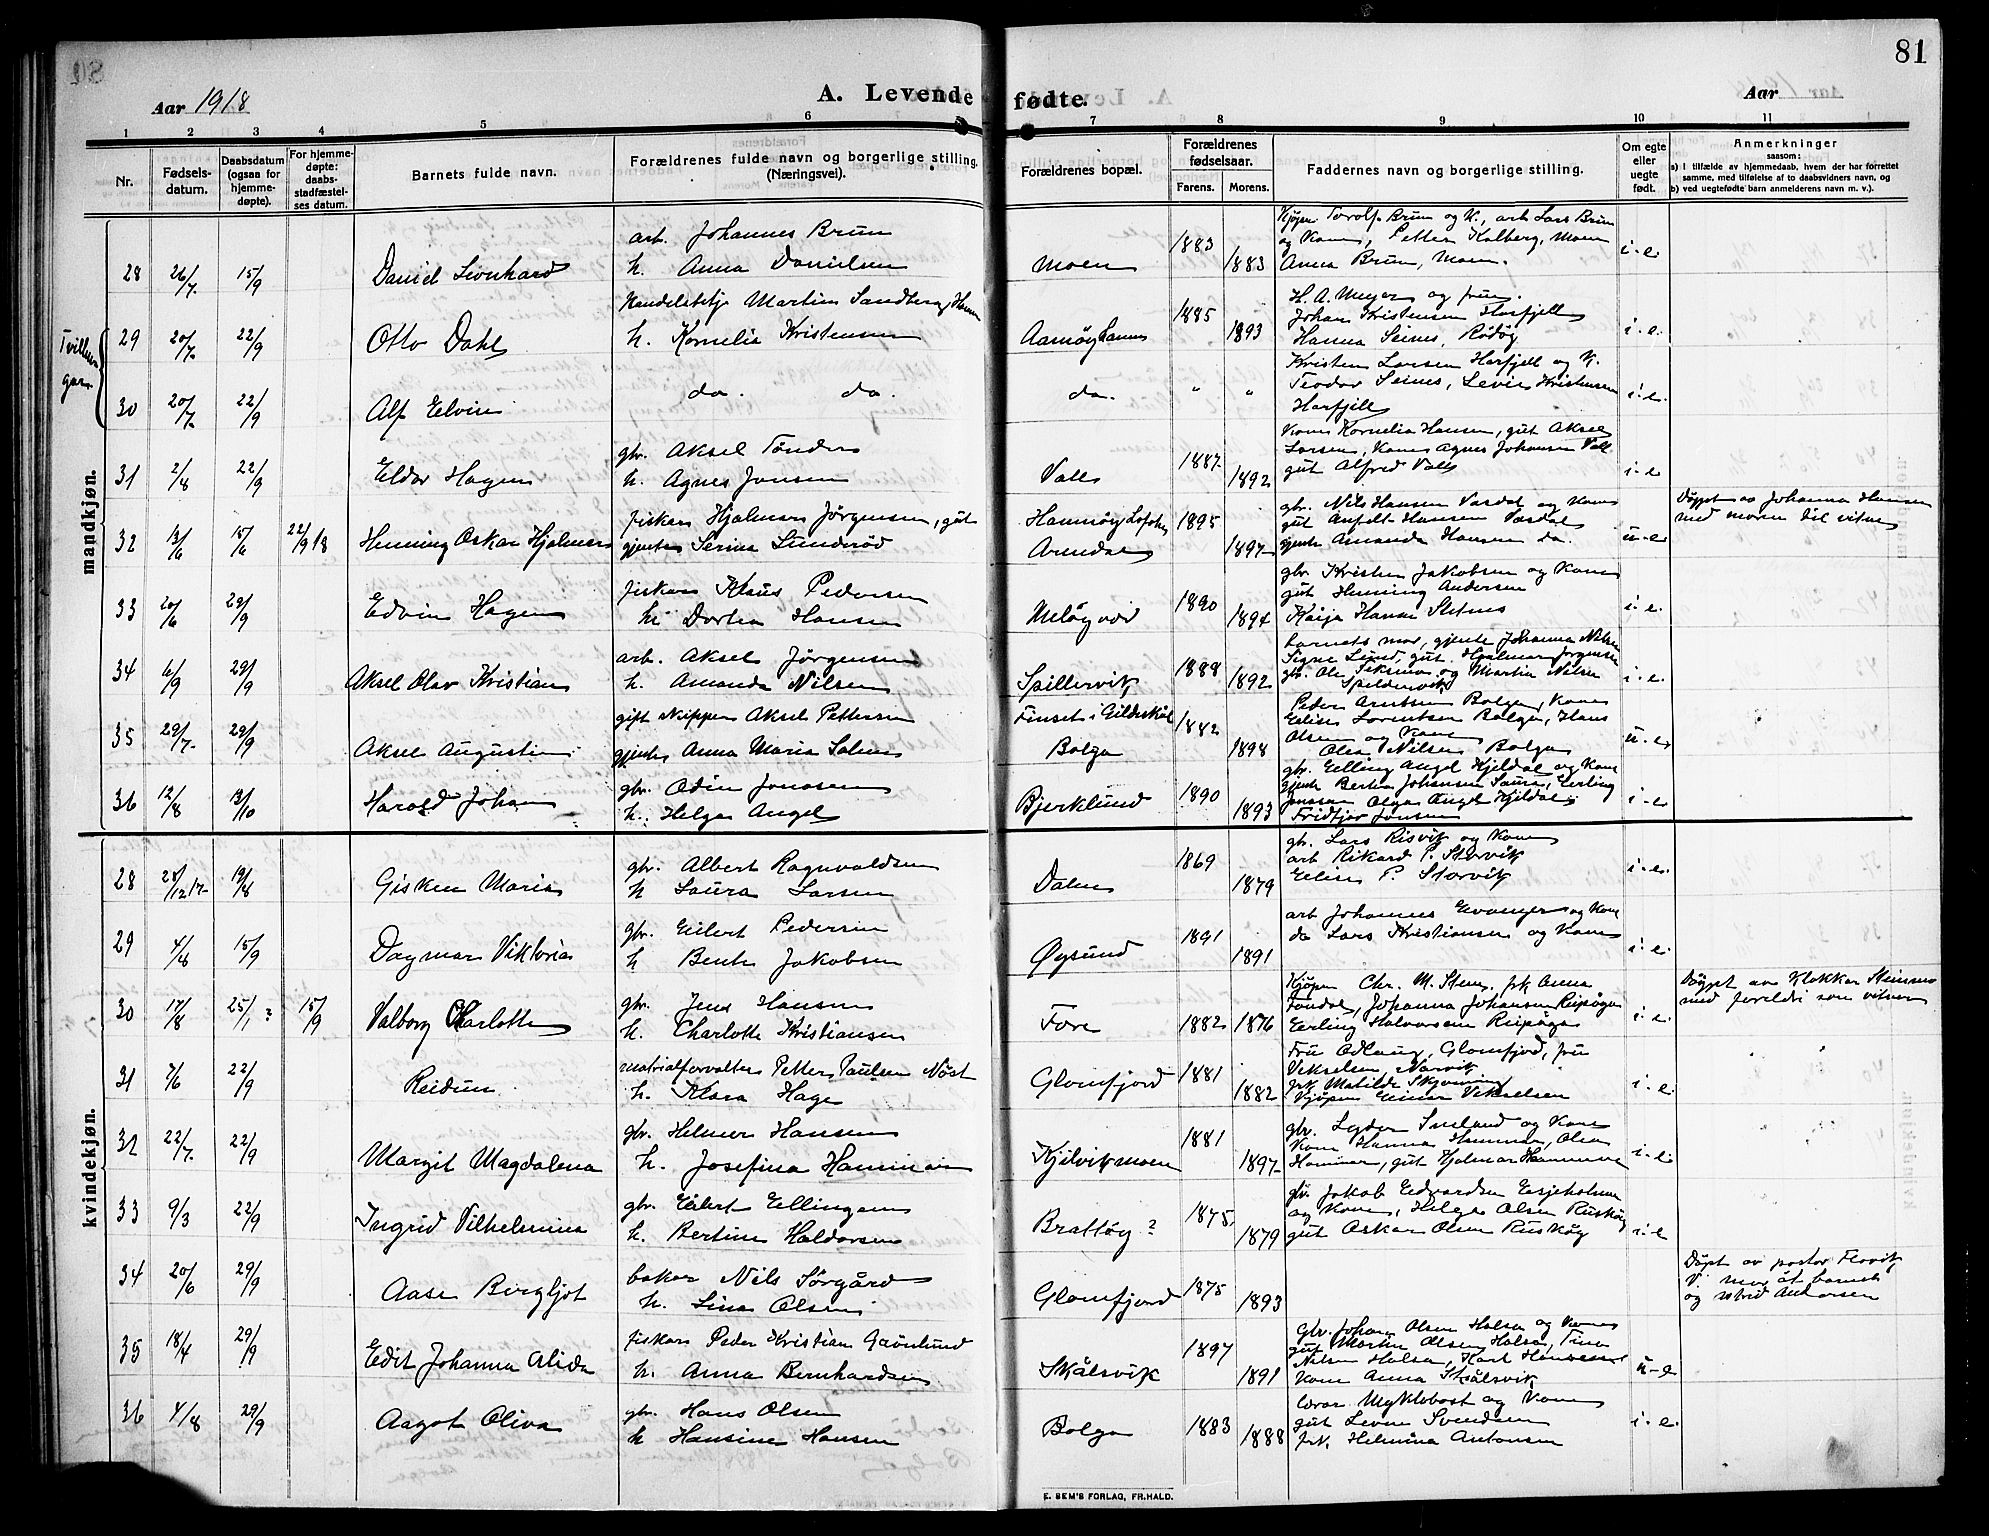 81
Aar 1918
A. Levende fødte.
Aar
1 2 3 4 5 6 7 8 9 10 11
Nr.
Fødselsdatum.
Daabsdatum (ogsaa for hjemmedøpte).
For hjemmedøpte: daabsstadfæstelses datum.
Barnets fulde navn.
Forældrenes fulde navn og borgerlige stilling. (Næringsvei).
Forældrenes bopæl.
Forældrenes fødselsaar.
Farens. Morens.
Faddernes navn og borgerlige stilling.
Om egte eller uegte født.
Anmerkninger
saasom:
a) I tilfælde av hjemmedaab, hvem der har forrettet samme, med tilføielse af to daabsvidners navn, og
b) ved uegtefødte barn anmelderens navn m. v.).
mandkjøn.
28 26/7 15/9 Daniel Leonhard arb. Johannes Brun
h. Anna Danielsen Moen 1883 1883 Kjøpm. Torolf Brun og K., arb Lars Brun
og Kone, Petter Kolberg, Moen
Anna Brun, Moen. i-e.
29 20/7 22/9 Otto Dahl Handelsbetj. Martin Sandberg Hansen
h. Kornelia Kristensen Aamøyhamn 1885 1893 H. A. Meyer og frue.
Johan Kristensen Horfjell
Hanna Seines, Rødøy i-e.
30 20/7 22/9 Alf Elvin do. do. do. " " Kristen Larsen Horfjell og K.
Teodor Seines, Levin Kristensen
Horfjell i-e.
31 2/8 22/9 Eldor Hagen gbr. Aksel Tønder
h. Agnes Jonsen Valle 1887 1892 Kone Kornelia Hansen, gut Aksel
Larsen, Kone Agnes Johansen Valle
gut Alfred Valle i-e
32 13/6 15/6 22/9 18 Henning Oskar Hjalmer fisker Hjalmar Jørgensen, gut
gjente Serina Lunderød Hamnøy Lofoten
Arndal 1895 1897 gbr. Nils Hansen Vasdal og Kone
gut Anfelt Hansen Vasdal
gjente Amanda Hansen do. u-e. Døypt av Johanna Hansen
med moren til vitne
33 20/6 29/9 Edvin Hagen fisker Klaus Pedersen
h. Dortea Hansen Meløyvær 1890 1894 gbr. Kristen Jakobsen og Kone
gut Henning Andersen
Kaija Hansen i-e.
34 6/9 29/9 Aksel Olav Kristian arb. Aksel Jørgensen
h. Amanda Nilsen Spillervik 1888 1892 barnets mor, gjente Johanna Nilsen
Signe Lund, gut Hjalmar Jørgensen
gbr. Ole og Martin Nilsen
Spildervik i-e.
35 29/7 29/9 Aksel Augustin gift skipper Aksel Pettersen
gjente Anna Maria Solem Finset i Gildeskål
Bolga 1882 1898 Peder Arntsen Bolga, Kone
Elise Lorentsen Bolga, Hans
Olsen og Kone
Olea Nilsen Bolga u-e
36 12/8 13/10 Harald Johan gbr. Odin Jonasen
h. Helga Angel Bjerklund 1890 1893 gbr. Elling Angel Hjeldal og Kone
gjente Bertea Johansen Saura, Erling
Jonassen Olga Angel Hjeldal
Fridtjov Jonsen i-e
Tvillingar.
kvindekjøn.
28 28/12 17 19/8 Gisken Maria gbr. Albert Ragnvaldsen
h Laura Larsen Dalen 1869 1879 gb. Lars Risvik og Kone
arb Rikard P. Storvik
Elise P. Storvik i-e.
29 4/8 15/9 Dagmar Viktoria gbr. Eilert Pedersen
h Bente Jakobsen Øysund 1891 1891 arb Johannes Evanger og Kone
do Lars Kristiansen og Kone i-e.
30 17/8 25/1 ? 15/9 Valborg Charlotte gbr. Jens Hansen
h. Charlotte Kristiansen Fore 1882 1876 Kjøpm Chr. M. Sten, frk Anna
Fondal, Johanna Johansen Reipåga
Erling Halvorsen Reipåga i-e. Døypt av Klokker Steinmo
med foreldri som vitner
31 7/6 22/9 Reidun. matrialforvalter Petter Paulsen Nøst
h. Klara Hage Glomfjord 1881 1882 Fru Odlaug, Glomfjord, fru
Vekselsen, Narvik
frk Matilde Skjevning
Kjøpm Einar Vekselsen i-e.
32 22/7 22/9 Margit Magdalena gbr. Helmer Hansen
h. Josefina Hammar Kjelvikmoen 1881 1897 gbr. Lyder Sneland og Kone
Kone Hanna Hammar, Olea
Hammar, gut Hjalmar Hammar i-e
33 9/3 22/9 Ingrid Vilhelmina gbr. Eilert Ellingsen
h. Bertine Haldorsen Brattøy ? 1875 1879 gbr. Jakob Edvardsen Esjeholmen
og Kone, Helga Olsen Ruskøy
gut Oskar Olsen Ruskøy i-e
34 20/6 29/9 Aase Bergljot baker Nils Sørgård
h. Lina Olsen Glomfjord 1875 1893 Døpt av pastor
V. mor åt barnet
og Astrid Andersen
35 18/4 29/9 Edit Johanna Alida fisker Peder Kristian Grønlund
h. Anna Bernhardsen Skålsvik 1897 1891 Gbr. Johan Olsen Halsa og Kone
gut Martin Olsen Halsa, Tina
Nilsen Halsa, Karl
Kone Anna Skålsvik u-e
36 4/8 29/9 Aagot Oliva gbr. Hans Olsen
h Hansine Hansen Bolga 1883 1888 lærar Myklebost og Kone
gut Levin Svendsen
frk. Helmina Antonsen i-e.
E. SEM'S FORLAG, FR.HALD.